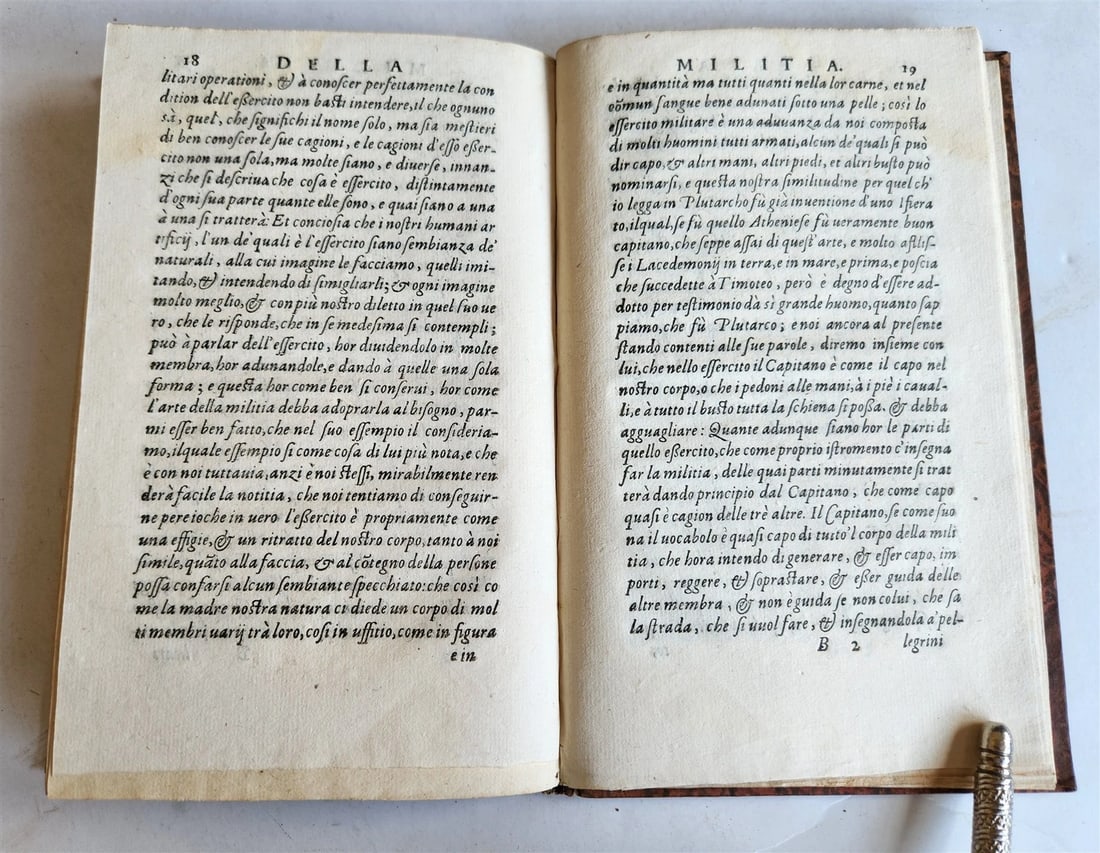 18 DELLA
litari operationi, & à conoscer perfettamente la con
dition dell'eßercito non basti intendere, il che ognuno
sà, quel, che significhi il nome solo, ma sia mestieri
di ben conoscer le sue cagioni, e le cagioni d'esso eßer-
cito non una sola, ma molte siano, e diverse, innan-
zi che si descriua che cosa è essercito, distintamente
d'ogni sua parte quante elle sono, e quai siano a una
à una si tratterà: Et conciosia che i nostri humani ar
tificij, l'un de' quali è l'essercito siano sembianza de'
naturali, alla cui imagine le facciamo, quelli imi-
tando, & intendendo di simigliarli; & ogni imagine
molto meglio, & con più nostro diletto in quel suo ue
ro, che le risponde, che in se medesima si contempli;
può à parlar dell'essercito, hor diuidendolo in molte
membra, hor adunandole, e dando à quelle una sola
forma; e questa hor come ben si conserui, hor come
l'arte della militia debba adoprarla al bisogno, par-
mi esser ben fatto, che nel suo essempio il consideria-
mo, ilquale essempio si come cosa di lui più nota, e che
è con noi tuttauia, anzi è noi stessi, mirabilmente ren
derà facile la notitia, che noi tentiamo di conseguir-
ne percioche in uero l'eßercito è propriamente come
una effigie, & un ritratto del nostro corpo, tanto à noi
simile, quāto alla faccia, & al cōtegno della persone
possa confarsi alcun sembiante specchiato: che così co
me la madre nostra natura ci diede un corpo di mol
ti membri uarij trà loro, così in uffitio, come in figura
e in
MILITIA. 19
e in quantità ma tutti quanti nella lor carne, et nel
cōmun sangue bene adunati sotto una pelle; così lo
essercito militare è una aduuanza da noi composta
di molti huomini tutti armati, alcun de' quali si può
dir capo, & altri mani, altri piedi, et altri busto può
nominarsi, e questa nostra similitudine per quel ch'
io legga in Plutarcho fù già inuentione d'uno Ifiera
to, ilqual, se fù quello Atheniese fù ueramente buon
capitano, che seppe assai di quest'arte, e molto afflis-
se i Lacedemonij in terra, e in mare, e prima, e poscia
che succedette à Timoteo, però è degno d'essere ad-
dotto per testimonio dà sì grande huomo, quanto sap
piamo, che fù Plutarco; e noi ancora al presente
stando contenti alle sue parole, diremo insieme con
lui, che nello essercito il Capitano è come il capo nel
nostro corpo, o che i pedoni alle mani, à i piè i caual-
li, e à tutto il busto tutta la schiena si possa. & debba
agguagliare: Quante adunque siano hor le parti di
quello eßercito, che come proprio istromento c'insegna
far la militia, delle quai parti minutamente si trat
terà dando principio dal Capitano, che come capo
quasi è cagion delle trè altre. Il Capitano, se come suo
na il uocabolo è quasi capo di tutto'l corpo della mili
tia, che hora intendo di generare, & esser capo, im
porti, reggere, & soprastare, & eßer guida delle
altre membra, & non è guida se non colui, che sa
la strada, che si uuol fare, & insegnandola a' pel-
B 2 legrini